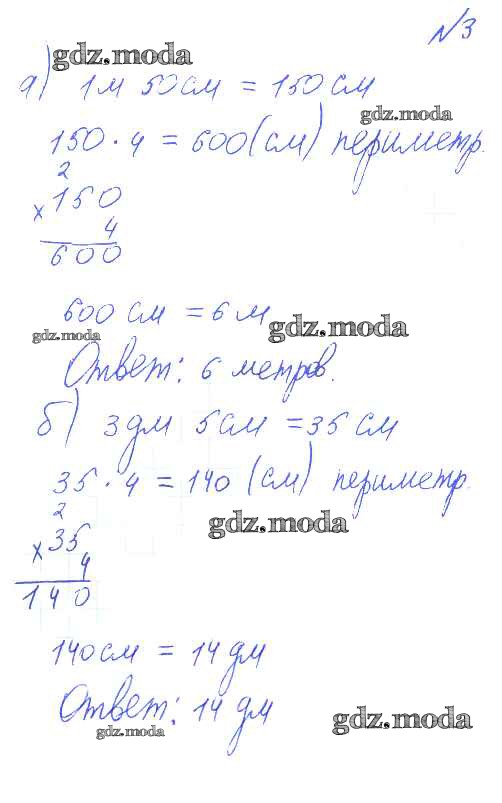 №3
gdz.moda
а) 1м 50см = 150 см
gdz.moda
150 · 4 = 600 (см) периметр.
2
× 150
4
600
600 см = 6 м
gdz.moda
gdz.moda
Ответ: 6 метров.
б) 3 дм 5 см = 35 см
35 · 4 = 140 (см) периметр.
2
gdz.moda
× 35
4
140
140 см = 14 дм
Ответ: 14 дм
gdz.moda
gdz.moda